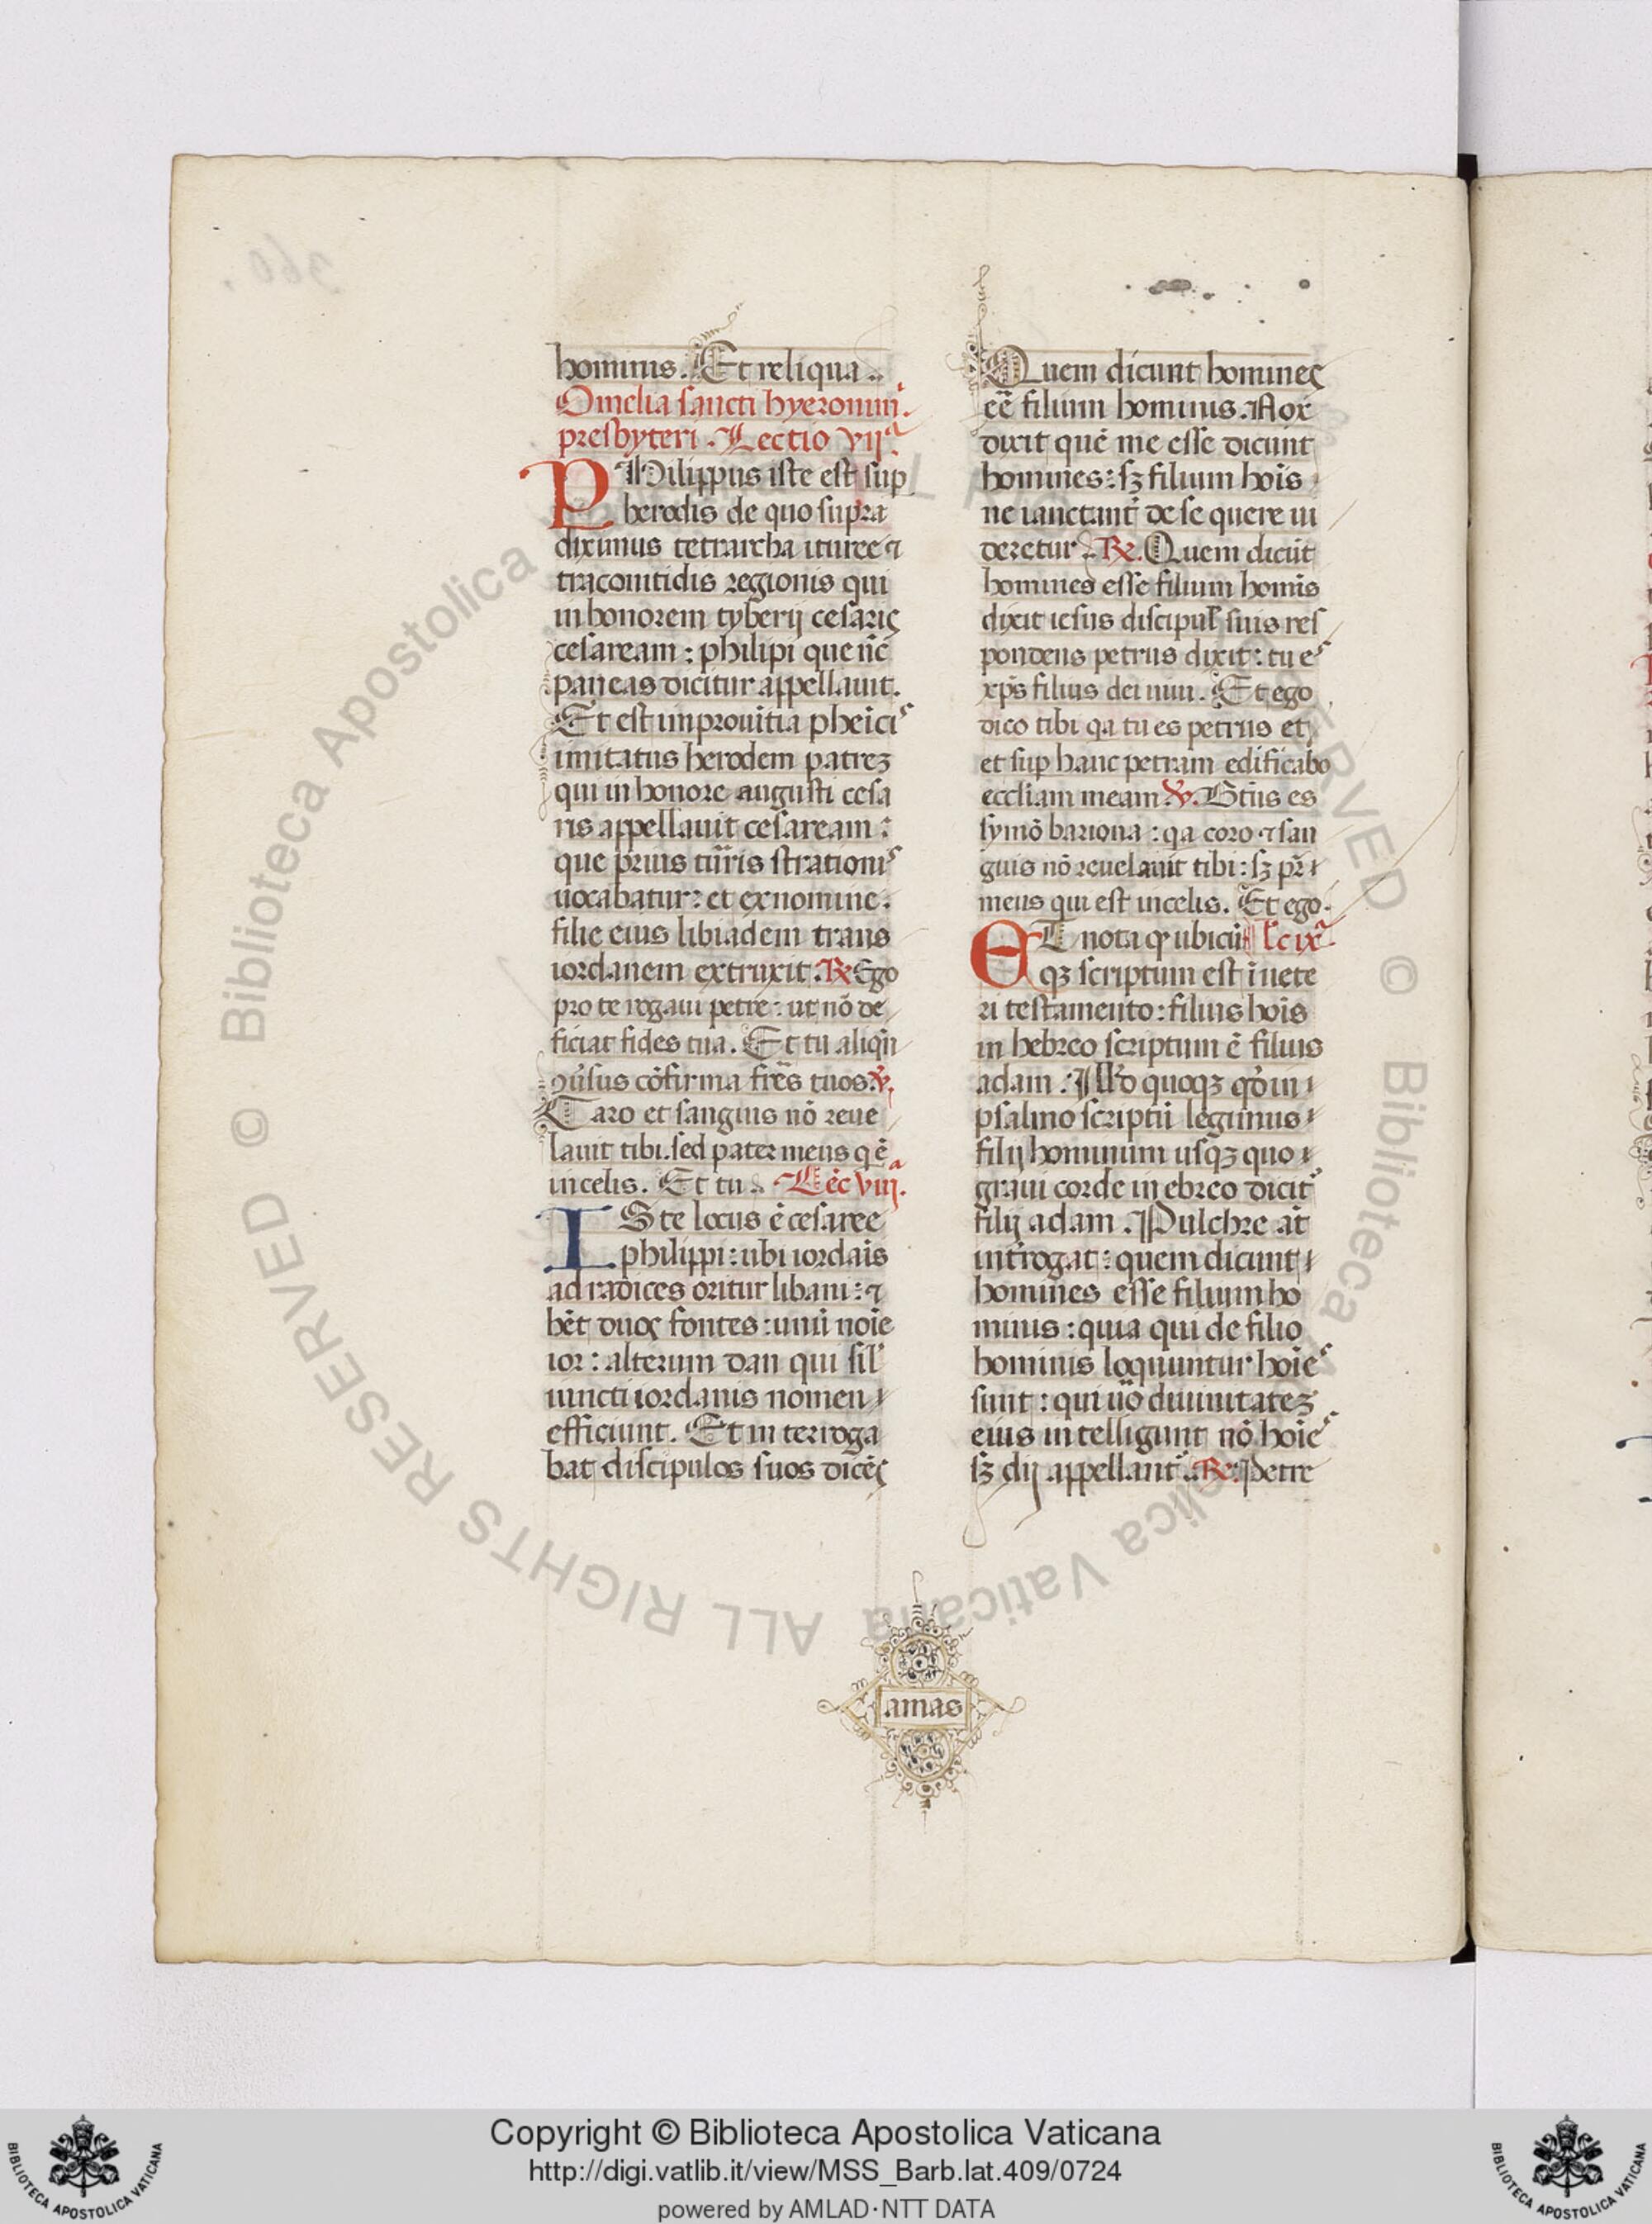 hominis. Et reliqua..
Omelia sancti hyeronimi.
presbyteri. Lectio vijª
PHilippus iste est sup
herodis de quo supra
diximus tetrarchaituree ⁊
traconitidis regionis qui
in honorem tyberij cesaris
cesaream: philipi que nc̄
paneas dicitur appellauit.
Et est in prouītia phēicis
imitatus herodem patreꝫ
qui in honore augusti cesa
ris appellauit cesaream:
que prius turris strationis
uocabatur: et ex nomine.
filie eius libiadem trans
iordanem extruxit. ℞ Ego
pro te rogaui petre: ut nō de
ficiat fides tua. Et tu aliqn̄
ꝯuersus cōfirma frēs tuos. ℣.
Caro et sanguis nō reue
lauit tibi. sed pater meus q ē
in celis. Et tu. Lēc viijª.
ISte locus ē cesaree
philippi: ubi iordāis
ad radices oritur libani: ⁊
hēt duos fontes: unū noīe
ior: alterum dan qui sil'
iuncti iordanis nomen
efficiunt. Et interroga
bat discipulos suos dicēs
Quem dicunt homines
eē filium hominis. Nox
dixit quē me esse dicunt
homines: sꝫ filium hoīs
ne ianctant̄ de se quere ui
deretur. ℞. Quem dicūt
homines esse filium homīs
dixit iesus discipul' suis res
pondens petrus dixit: tu es
xp̄s filius dei uiui. Et ego
dico tibi qa tu es petrus et
et sup hanc petram edificabo
eccliam meam. ℣. Btūs es
symō bariona: qa coro ⁊ san
guis nō reuelauit tibi: sꝫ pr̄
meus qui est in celis. Et ego.
ET nota ꝙ ubicū l'c ixª
qꝫ scriptum est ī uete
ri testamento: filius hoīs
in hebreo scriptum ē filius
adam. Illd quoqꝫ qd̄ in
psalmo scriptū legimus
filij hominum usqꝫ quo
graui corde in ebreo dicit̄
filij adam. Pulchre aūt
introgat: quem dicunt
homines esse filium ho
minis: quia qui de filio
hominis loquuntur hoīes
sunt: qui uo diuinitateꝫ
eius intelligunt nō hoīes
sꝫ dij appellant̄.. ℞. Petre
amas
Copyright © Biblioteca Apostolica Vaticana
http://digi.vatlib.it/view/MSS_Barb.lat.409/0724
powered by AMLAD·NTT DATA
BIBLIOTECA APOSTOLICA VATICANA
BIBLIOTECA APOSTOLICA VATICANA
© Biblioteca Apostolica Vaticana ALL RIGHTS RESERVED